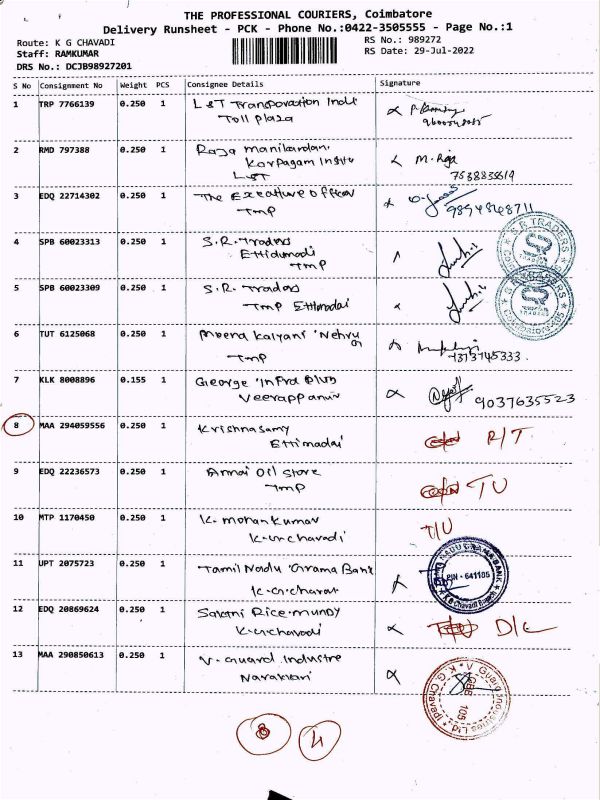 THE PROFESSIONAL COURIERS, Coimbatore
Delivery Runsheet - PCK - Phone No.:0422-3505555 - Page No.:1
Route: K G CHAVADI
RS No.: 989272
Staff: RAMKUMAR
RS Date: 29-Jul-2022
DRS No.: DCJB98927201
S No Consignment No Weight PCS Consignee Details Signature
1 TRP 7766139 0.250 1 L&T
Toll plaza
2 RMD 797388 0.250 1 Raja Manikandan
Karpagam
L&T M. Raja
3 EDQ 22714302 0.250 1 The officer
TMP
4 SPB 60023313 0.250 1 S.R. Traders
Ettidumadi
TMP
S R TRADERS
5 SPB 60023309 0.250 1 S.R. Traders
TMP
6 TUT 6125068 0.250 1 Meena Kalyani Nehru
TMP
7 KLK 8008896 0.155 1 George Infra Plus
9037635523
8 MAA 294059556 0.250 1 Krishnasamy
Ettimadai R/T
9 EDQ 22236573 0.250 1 Oil Store
TMP TU
10 MTP 1170450 0.250 1 K. Mohan Kumar
K.G.Chavadi T/U
11 UPT 2075723 0.250 1 Tamil Nadu Grama Bank
PIN - 641105
K G Chavadi Branch
12 EDQ 20869624 0.250 1 Sakani Rice Mundy
K.G.Chavadi D/L
13 MAA 290850613 0.250 1 V. Guard Industre
V Guard Industries Ltd
8 4